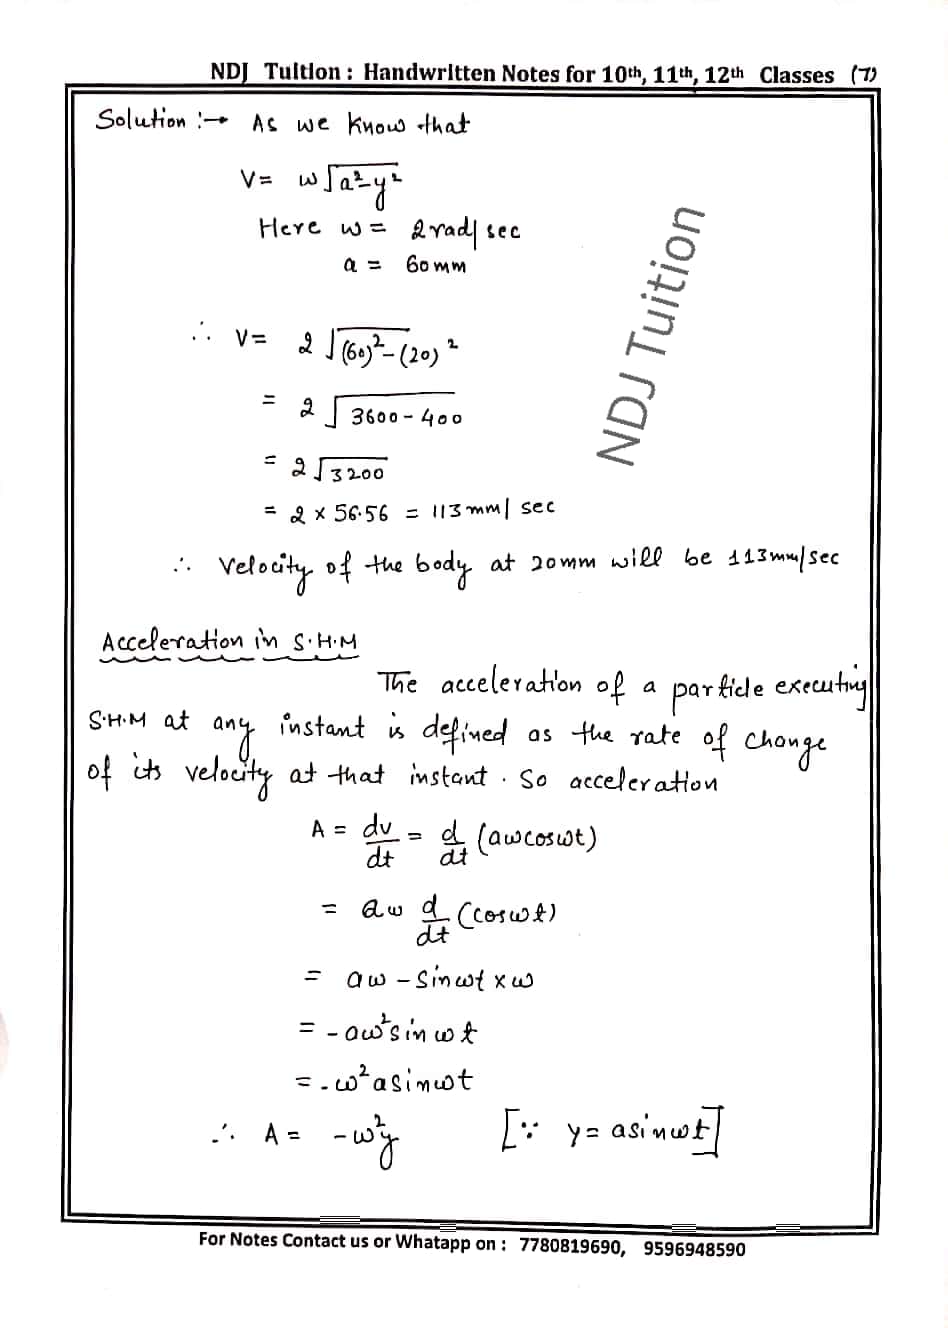 NDJ Tuition : Handwritten Notes for 10th, 11th, 12th Classes (7)
Solution :→ As we know that
V = w√a²-y²
Here w = 2rad/sec
a = 60mm
∴ V = 2√(60)²-(20)²
= 2√3600-400
= 2√3200
= 2 × 56.56 = 113mm/sec
∴ Velocity of the body at 20mm will be 113mm/sec
NDJ Tuition
Acceleration in S.H.M
The acceleration of a particle executing
S.H.M at any instant is defined as the rate of change
of its velocity at that instant. So acceleration
A = dv/dt = d/dt (awcoswt)
= aw d/dt (coswt)
= aw - sinwt x w
= - aw²sinwt
= - w²asinwt
∴ A = - w²y [∵ y = asinwt]
For Notes Contact us or Whatapp on : 7780819690, 9596948590